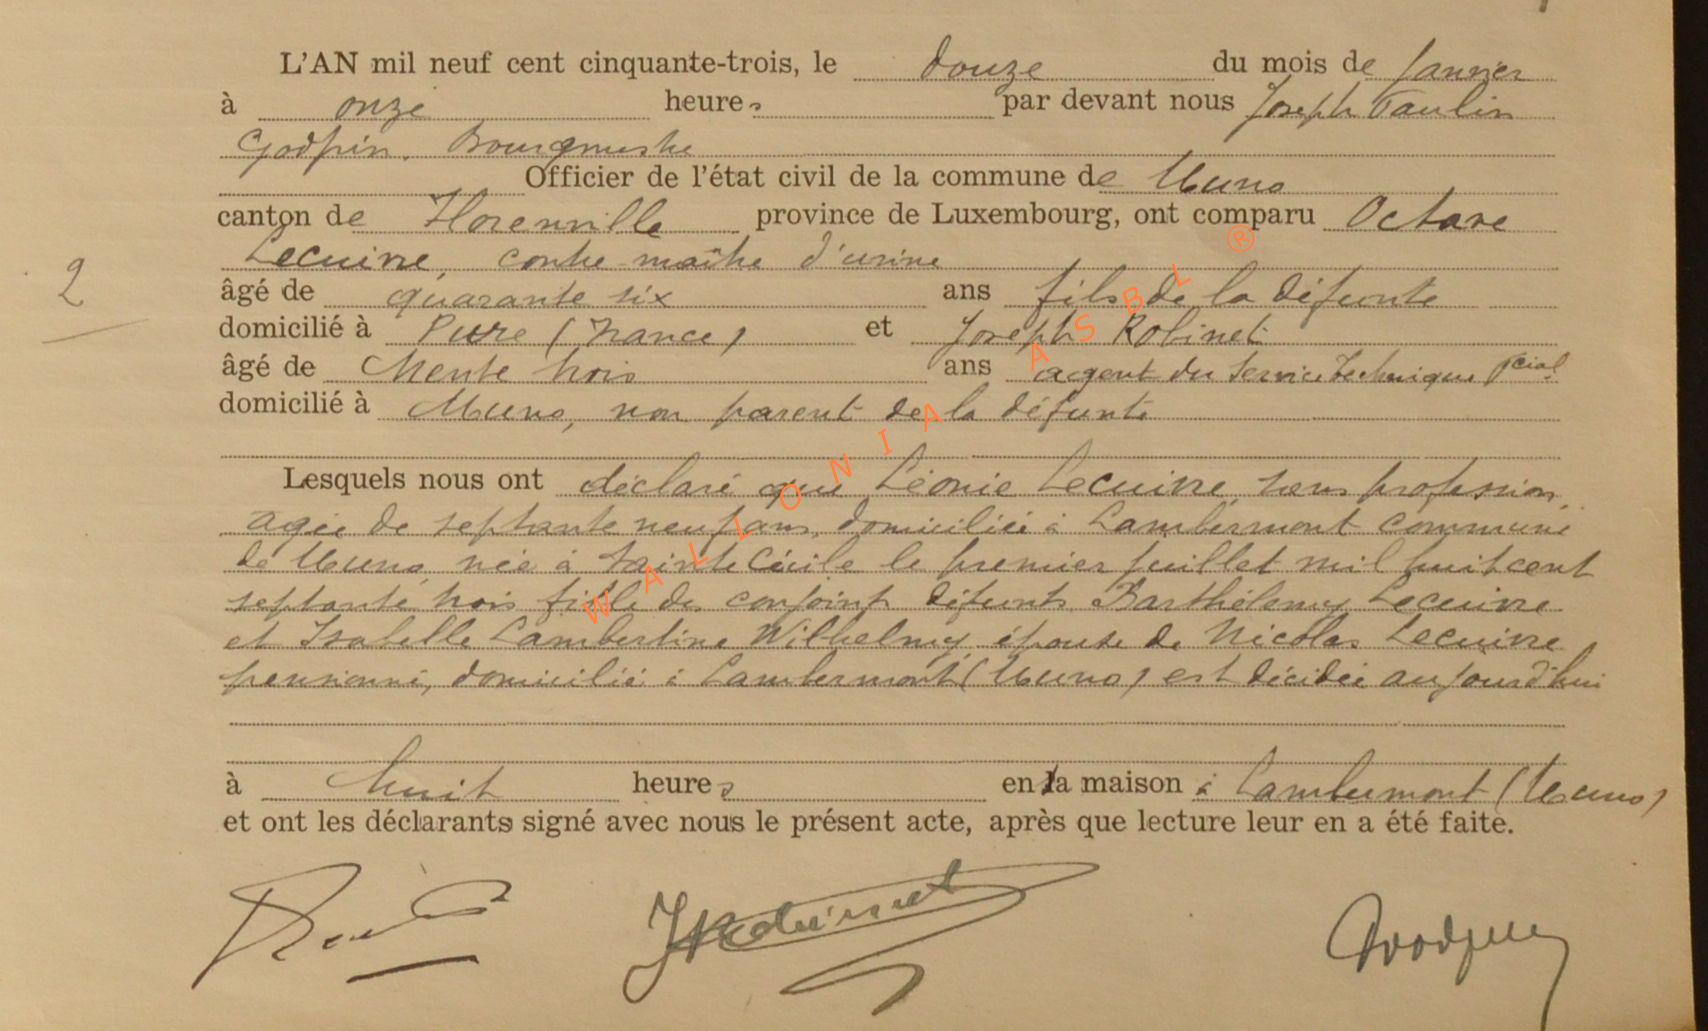 L'AN mil neuf cent cinquante-trois, le douze du mois de Janvier
à onze heures par devant nous Joseph Paulin
Godfrin, Bourgmestre
Officier de l'état civil de la commune de Muno
canton de Florenville province de Luxembourg, ont comparu Octave
Lecuivre, contre-maître d'usine
âgé de quarante six ans fils de la défunte
domicilié à Pure (France) et Joseph Robinet
2
âgé de trente trois ans agent du service technique pcial
domicilié à Muno, non parent de la défunte
Lesquels nous ont déclaré que Léonie Lecuivre, sans profession,
agée de septante neuf ans, domiciliée à Lambermont commune
de Muno, née à Sainte Cécile le premier juillet mil huit cent
septante trois fille des conjoints défunts Barthélemy Lecuivre
et Isabelle Lambertine Wilhelmy, épouse de Nicolas Lecuivre
pensionné, domicilié à Lambermont (Muno) est décédée aujourd'hui
à huit heures en la maison à Lambermont (Muno)
et ont les déclarants signé avec nous le présent acte, après que lecture leur en a été faite.
JRobinet
WALLONIA ASBL ®